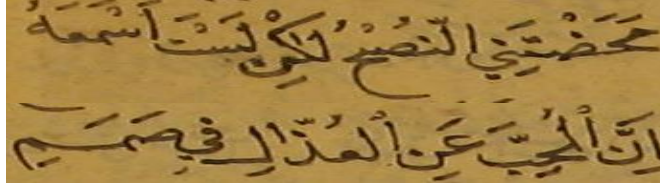 مَحَضْتَنِي النُّصْحَ لٰكِنْ لَسْتُ اَسْمَعُهُ
اِنَّ الْمُحِبَّ عَنِ الْعُذَّالِ فِي صَمَمِ